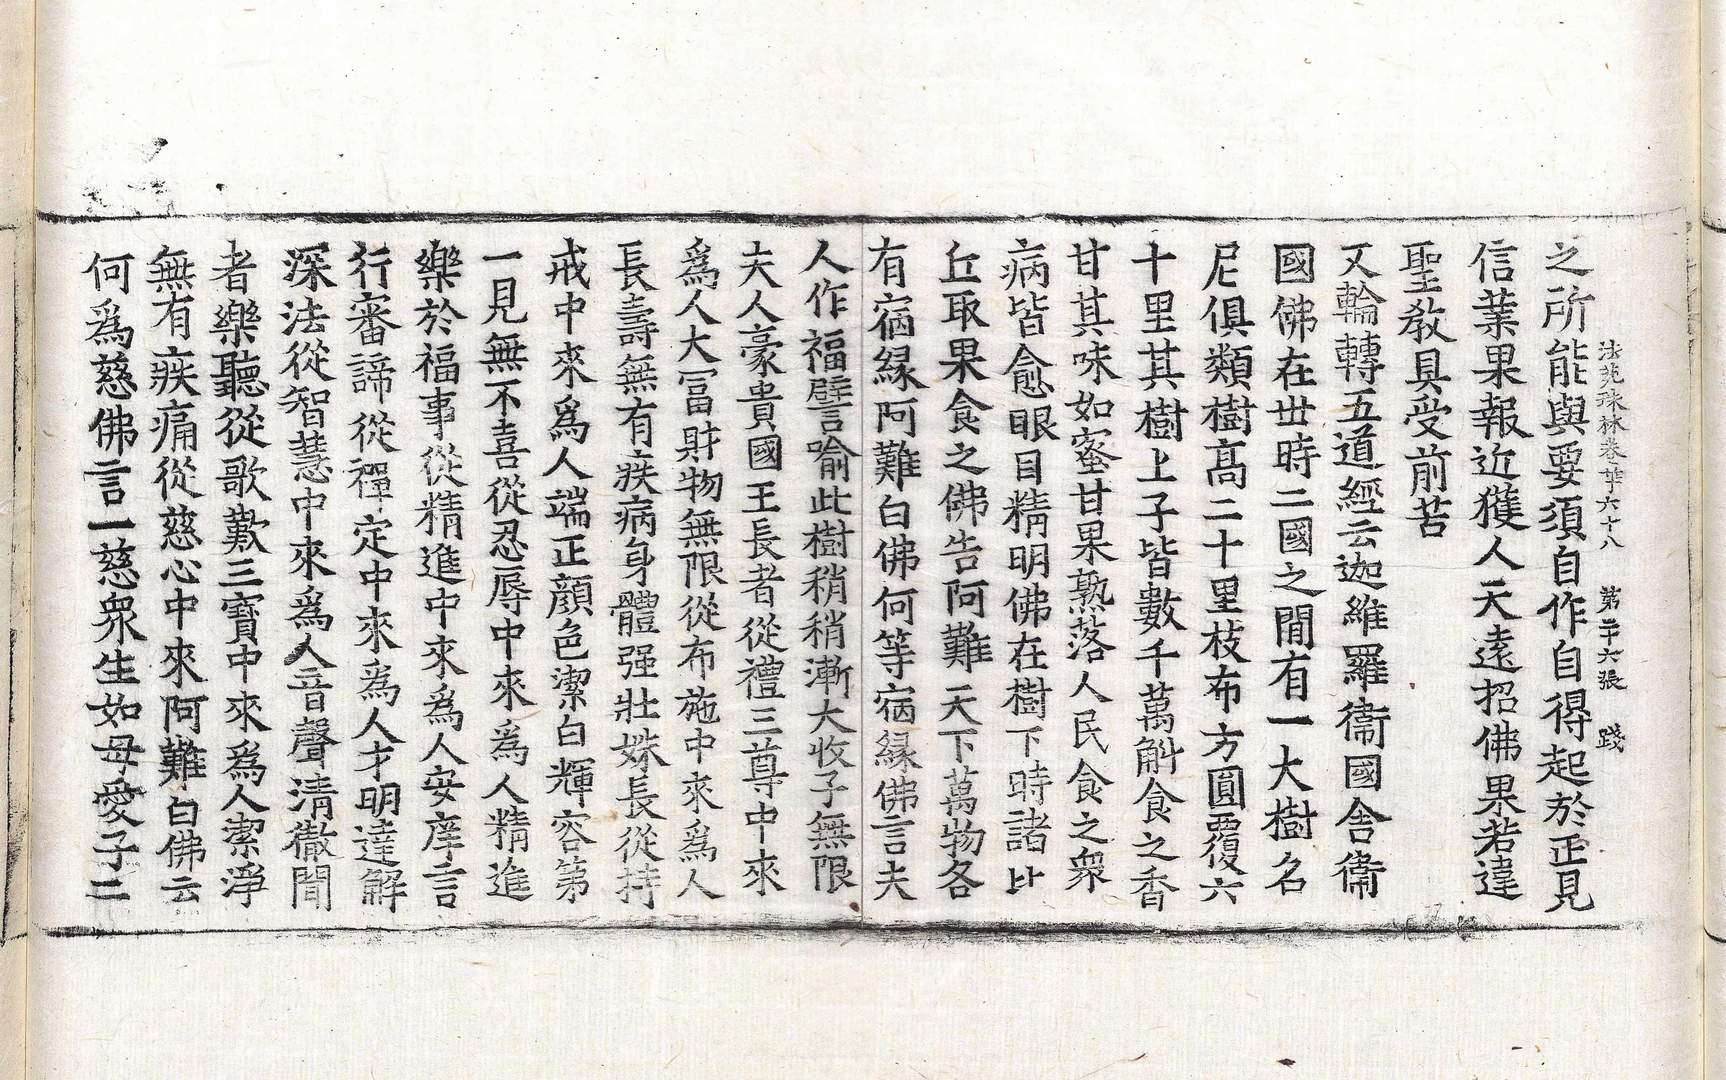 法苑珠林卷第六十八　第二十六張　踐
之所能與要須自作自得起於正見
信業果報近獲人天遠招佛果若違
聖敎具受前苦
又輪轉五道經云迦維羅衞國舍衞
國佛在世時二國之間有一大樹名
尼俱類樹高二十里枝布方圓覆六
十里其樹上子皆數千萬斛食之香
甘其味如蜜甘果熟落人民食之衆
病皆愈眼目精明佛在樹下時諸比
丘取果食之佛告阿難天下萬物各
有宿緣阿難白佛何等宿緣佛言夫
人作福譬喻此樹稍稍漸大收子無限
夫人豪貴國王長者從禮三尊中來
爲人大富財物無限從布施中來爲人
長壽無有疾病身體强壯姝長從持
戒中來爲人端正顔色潔白輝容第
一見無不喜從忍辱中來爲人精進
樂於福事從精進中來爲人安庠言
行審諦從禪定中來爲人才明達解
深法從智慧中來爲人音聲清徹聞
者樂聽從歌歎三寶中來爲人潔淨
無有疾痛從慈心中來阿難白佛云
何爲慈佛言一慈衆生如母愛子二